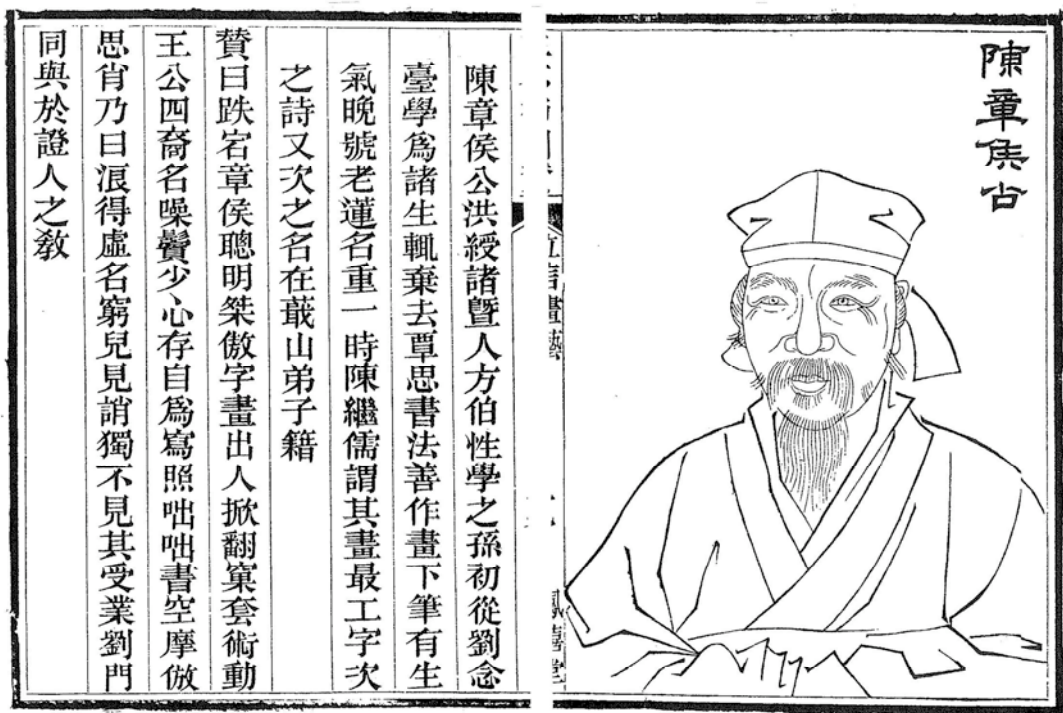 陳章侯公
陳章侯公洪綬諸暨人方伯性學之孫初從劉念
臺學爲諸生輒棄去覃思書法善作畫下筆有生
氣晚號老蓮名重一時陳繼儒謂其畫最工字次
之詩又次之名在蕺山弟子籍
贊曰跌宕章侯聰明桀傲字畫出人掀翻窠套術動
王公四裔名噪鬢少心存自爲寫照咄咄書空摩倣
思肖乃曰浪得虛名窮兒見誚獨不見其受業劉門
同與於證人之教